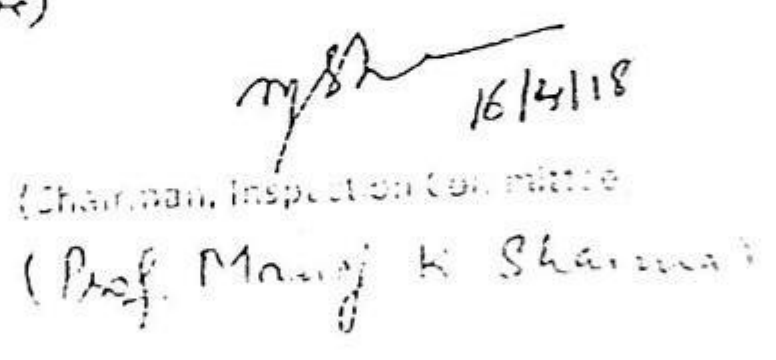 16/4/18
(Chairman, Inspection Committee
(Prof. Manoj K Sharma)